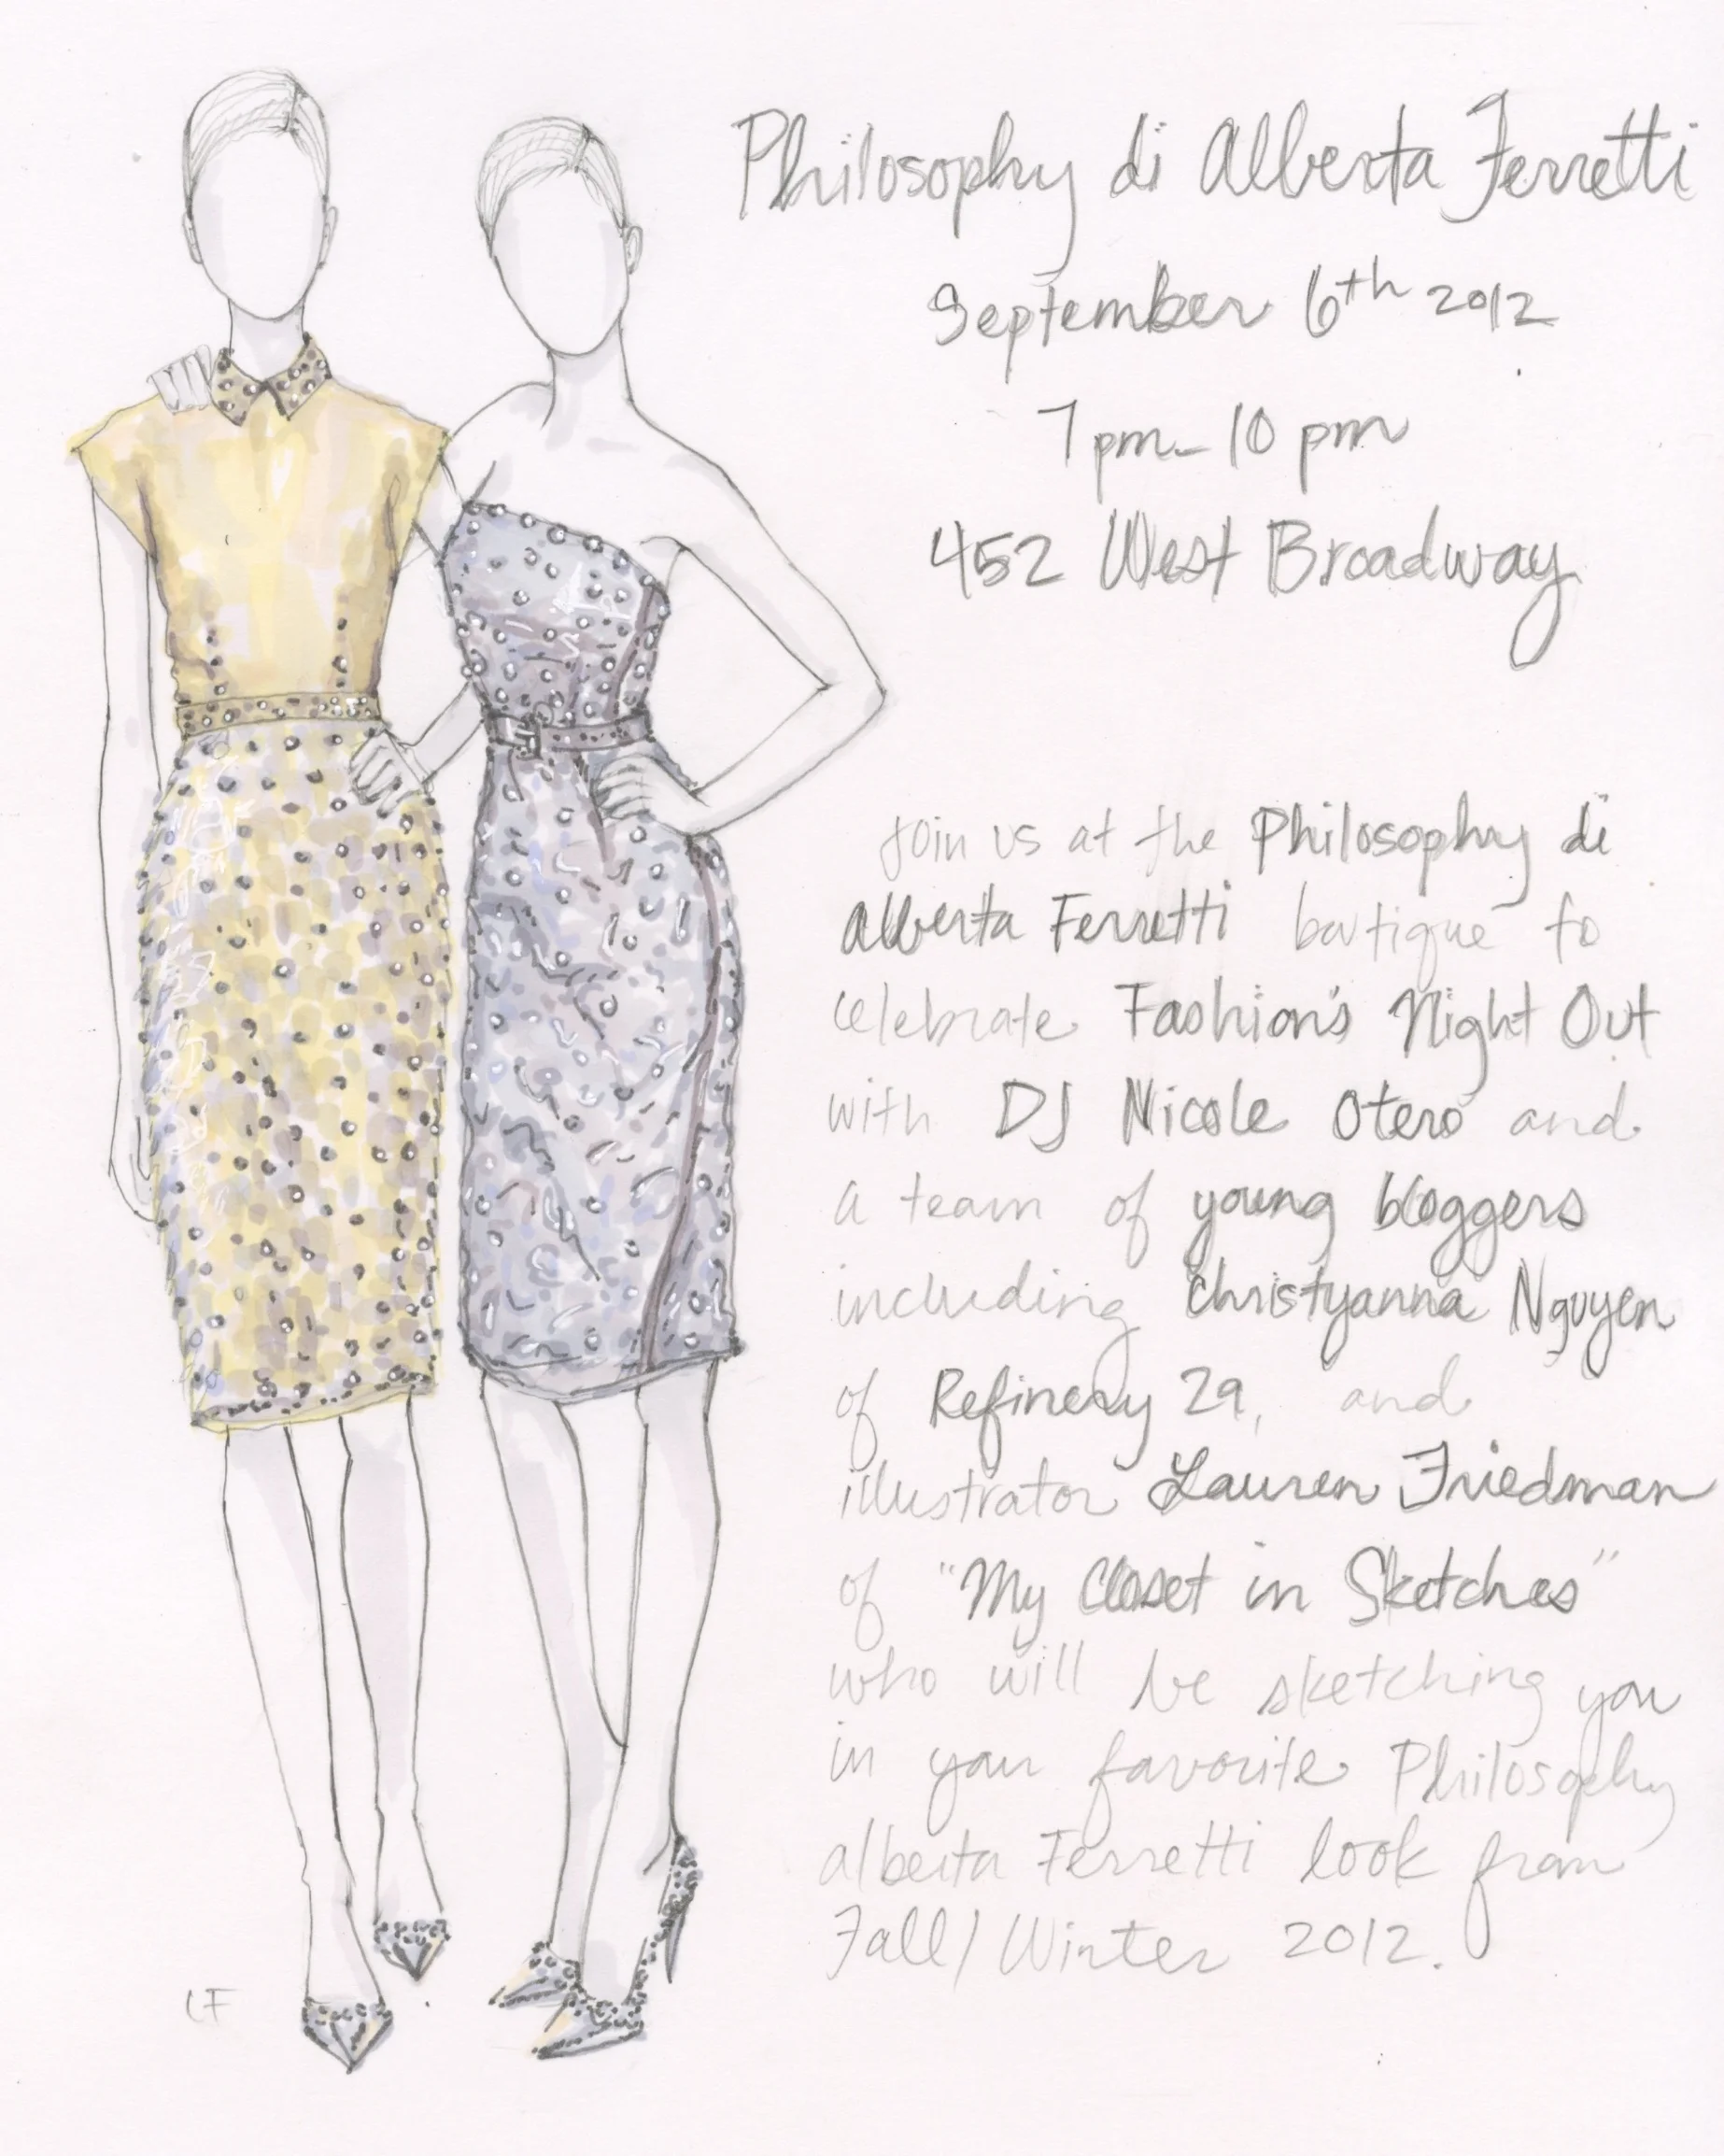 Philosophy di Alberta Ferretti
September 6th 2012
7 pm - 10 pm
452 West Broadway
Join us at the Philosophy di
Alberta Ferretti boutique to
celebrate Fashion's Night Out
with DJ Nicole Otero and
a team of young bloggers
including Christyanna Nguyen
of Refinery 29, and
illustrator Lauren Friedman
of "My Closet in Sketches"
who will be sketching you
in your favorite Philosophy
Alberta Ferretti look from
Fall/Winter 2012.
LF